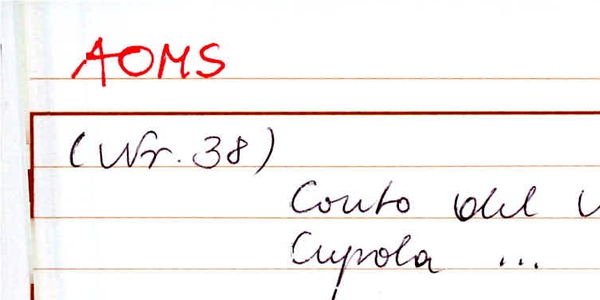 AOMS
(Nr. 38)
Conto del
Cupola ...